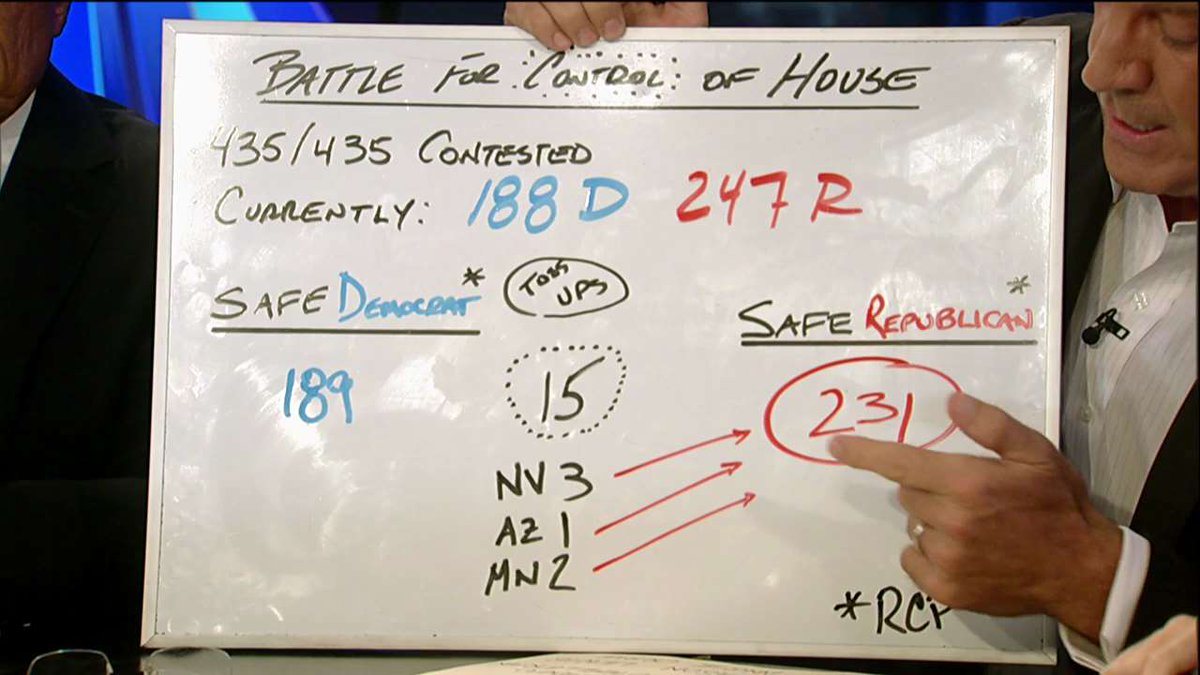 BATTLE FOR CONTROL OF HOUSE
435/435 CONTESTED
CURRENTLY: 188 D 247 R
SAFE DEMOCRAT*
TOSS UPS
SAFE REPUBLICAN*
189
15
231
NV 3
AZ 1
MN 2
*RCP